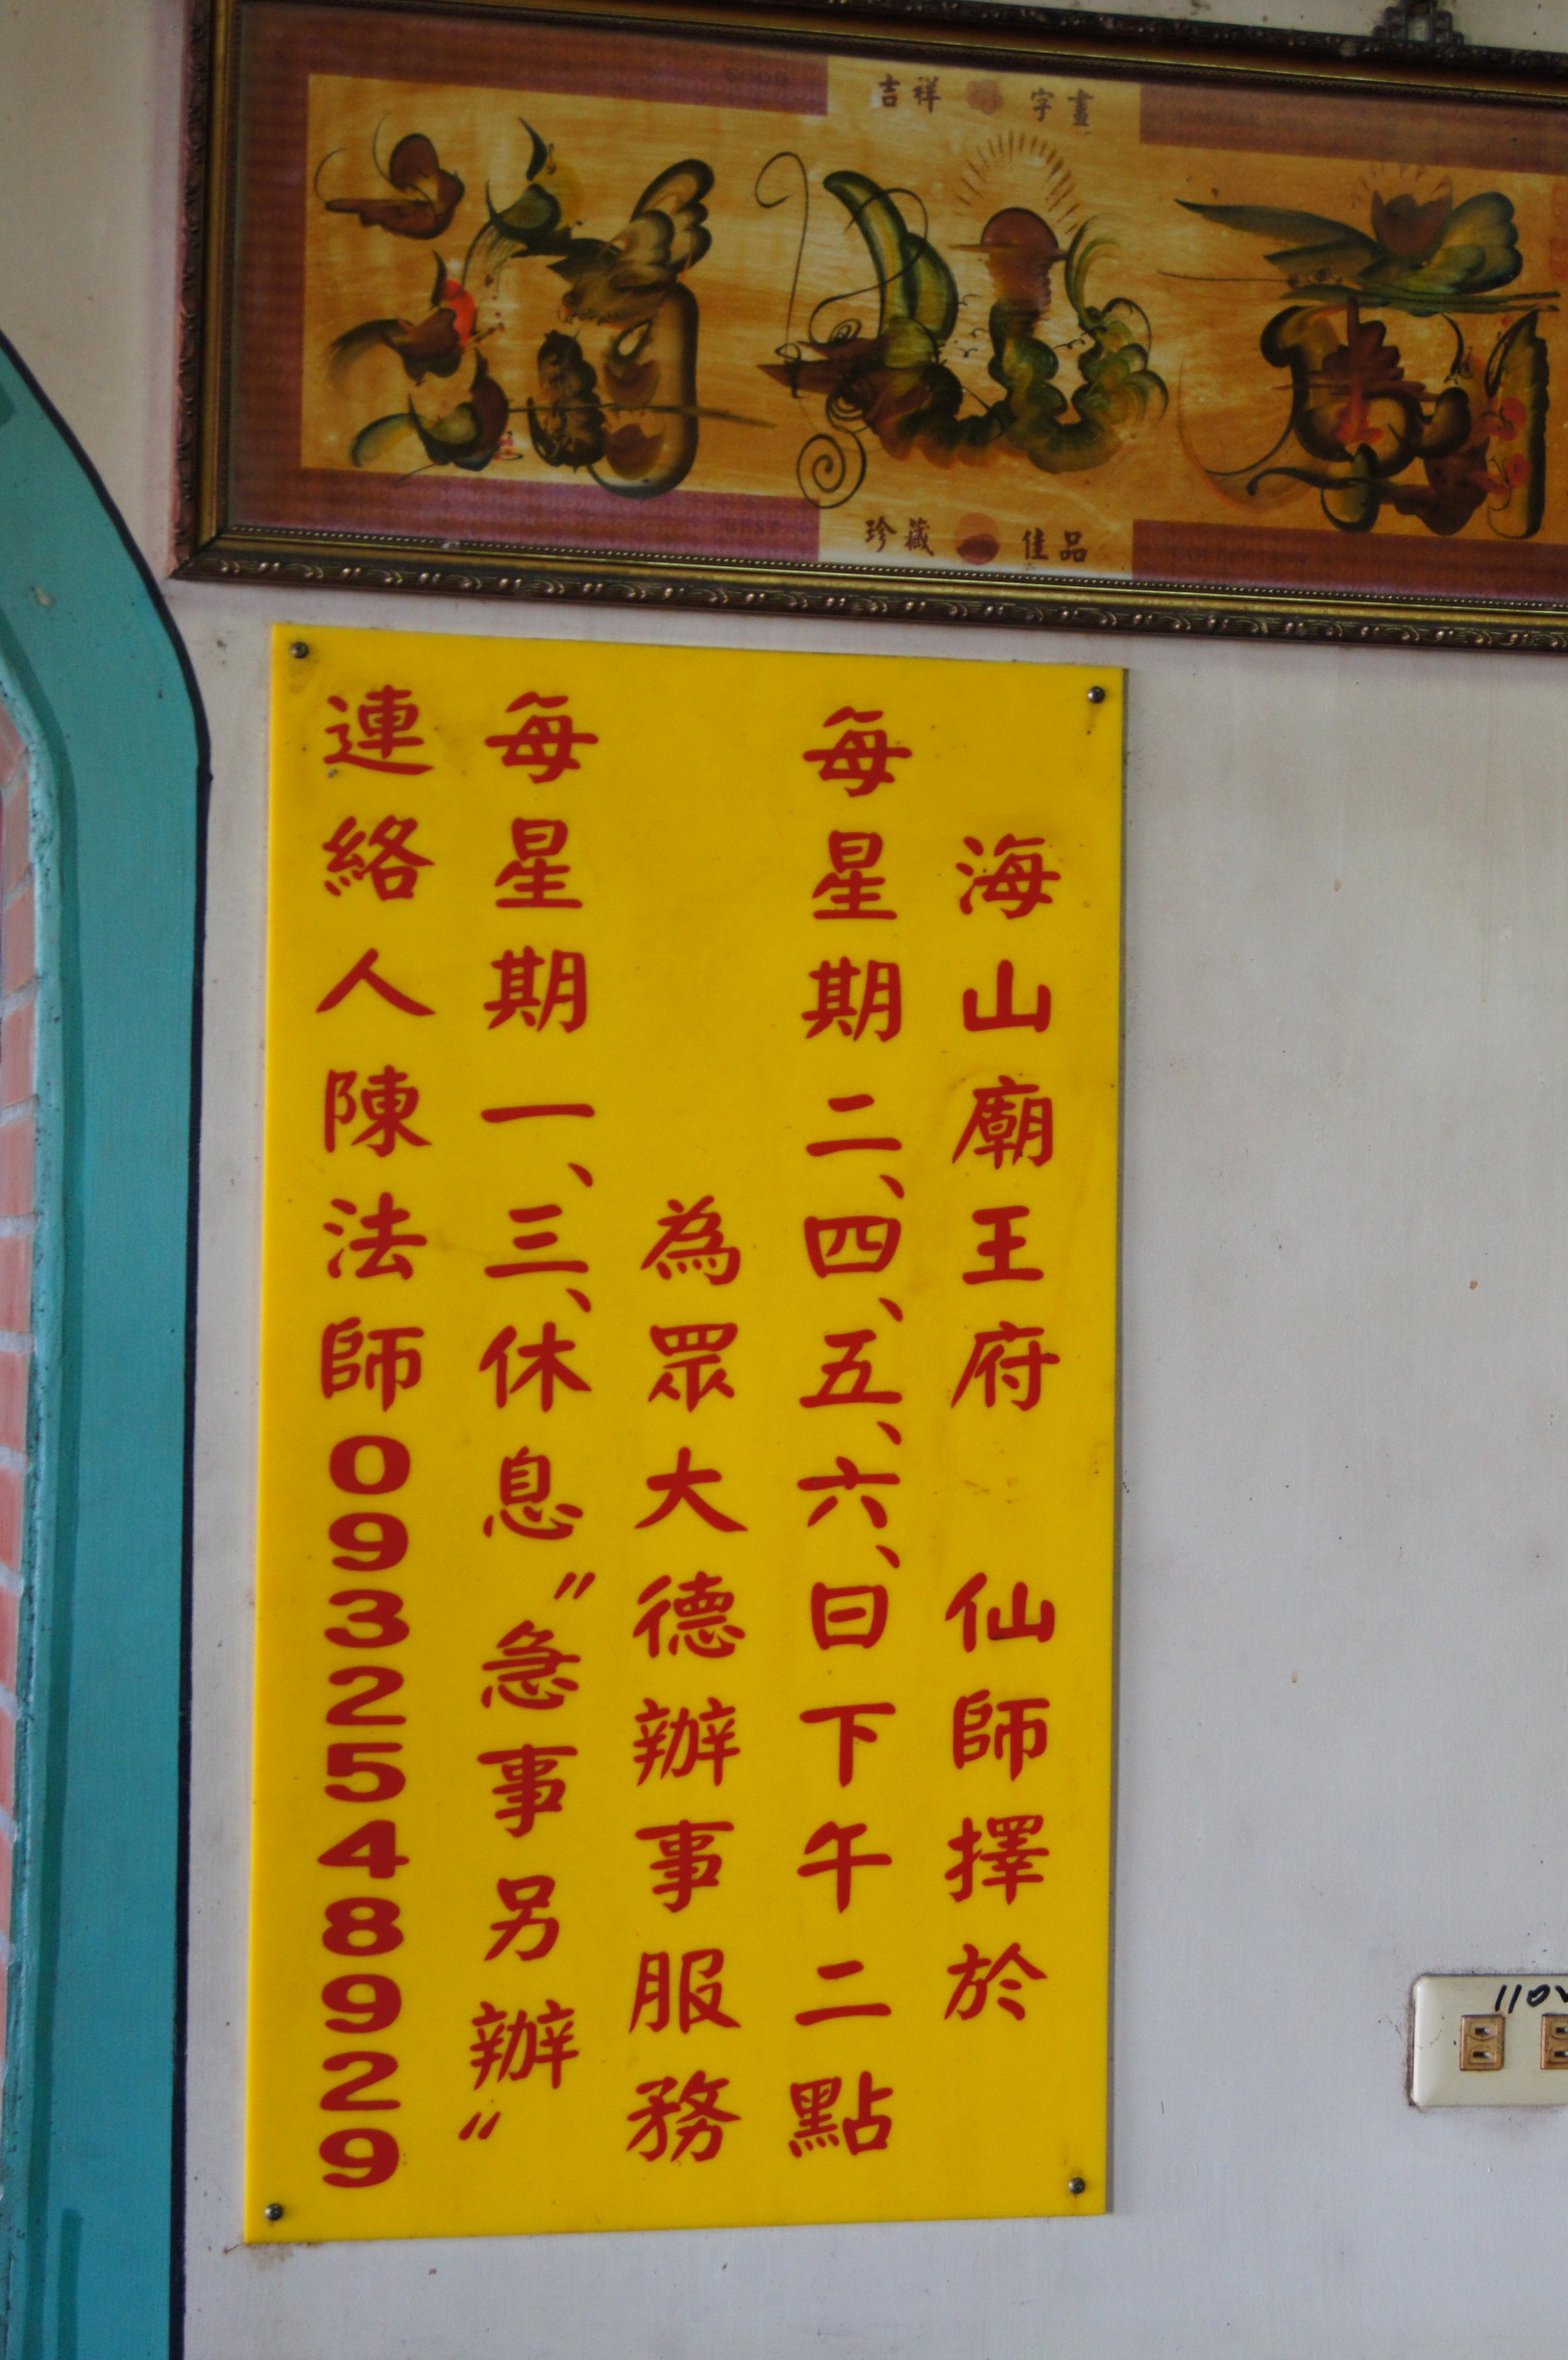 吉祥 字畫
珍藏 佳品
海山廟王府 仙師擇於
每星期二、四、五、六、日下午二點
為眾大德辦事服務
每星期一、三、休息〝急事另辦〞
連絡人陳法師0932548929
110V